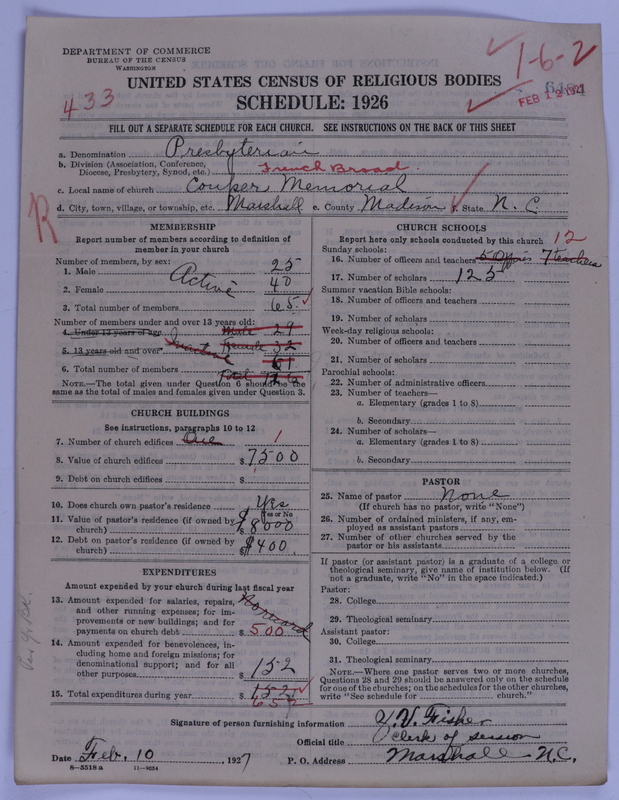 DEPARTMENT OF COMMERCE
BUREAU OF THE CENSUS
WASHINGTON
1-6-2
433
FEB 12 1927
UNITED STATES CENSUS OF RELIGIOUS BODIES
SCHEDULE: 1926
FILL OUT A SEPARATE SCHEDULE FOR EACH CHURCH. SEE INSTRUCTIONS ON THE BACK OF THIS SHEET
a. Denomination Presbyterian
b. Division (Association, Conference, Diocese, Presbytery, Synod, etc.) French Broad
c. Local name of church Couper Memorial
d. City, town, village, or township, etc. Marshall e. County Madison f. State N. C
R
MEMBERSHIP
Report number of members according to definition of member in your church
Number of members, by sex:
1. Male 25
Active
2. Female 40
3. Total number of members 65
Number of members under and over 13 years old:
4. Under 13 years of age Male 29
5. 13 years old and over Inactive Female 32
6. Total number of members 61
Total 126
NOTE.—The total given under Question 6 should be the same as the total of males and females given under Question 3.
CHURCH BUILDINGS
See instructions, paragraphs 10 to 12
7. Number of church edifices One 1
8. Value of church edifices $ 7500
9. Debt on church edifices $
10. Does church own pastor's residence Yes
Yes or No
11. Value of pastor's residence (if owned by church) $ 8000
12. Debt on pastor's residence (if owned by church) $ 400
EXPENDITURES
Amount expended by your church during last fiscal year
13. Amount expended for salaries, repairs, and other running expenses; for improvements or new buildings; and for payments on church debt No record $ 500
14. Amount expended for benevolences, including home and foreign missions; for denominational support; and for all other purposes $ 152
15. Total expenditures during year $ 152
652
CHURCH SCHOOLS
Report here only schools conducted by this church 12
Sunday schools:
16. Number of officers and teachers 5 Offrs 7 teachers
17. Number of scholars 125
Summer vacation Bible schools:
18. Number of officers and teachers
19. Number of scholars
Week-day religious schools:
20. Number of officers and teachers
21. Number of scholars
Parochial schools:
22. Number of administrative officers
23. Number of teachers—
a. Elementary (grades 1 to 8)
b. Secondary
24. Number of scholars—
a. Elementary (grades 1 to 8)
b. Secondary
PASTOR
25. Name of pastor None
(If church has no pastor, write "None")
26. Number of ordained ministers, if any, employed as assistant pastors
27. Number of other churches served by the pastor or his assistants
If pastor (or assistant pastor) is a graduate of a college or theological seminary, give name of institution below. (If not a graduate, write "No" in the space indicated.)
Pastor:
28. College
29. Theological seminary
Assistant pastor:
30. College
31. Theological seminary
NOTE.—Where one pastor serves two or more churches, Questions 28 and 29 should be answered only on the schedule for one of the churches; on the schedules for the other churches, write "See schedule for ............ church."
Signature of person furnishing information J. V. Fisher
Official title Clerk of session
Date Feb. 10, 1927 P. O. Address Marshall N.C.
8—5518 a 11—9034